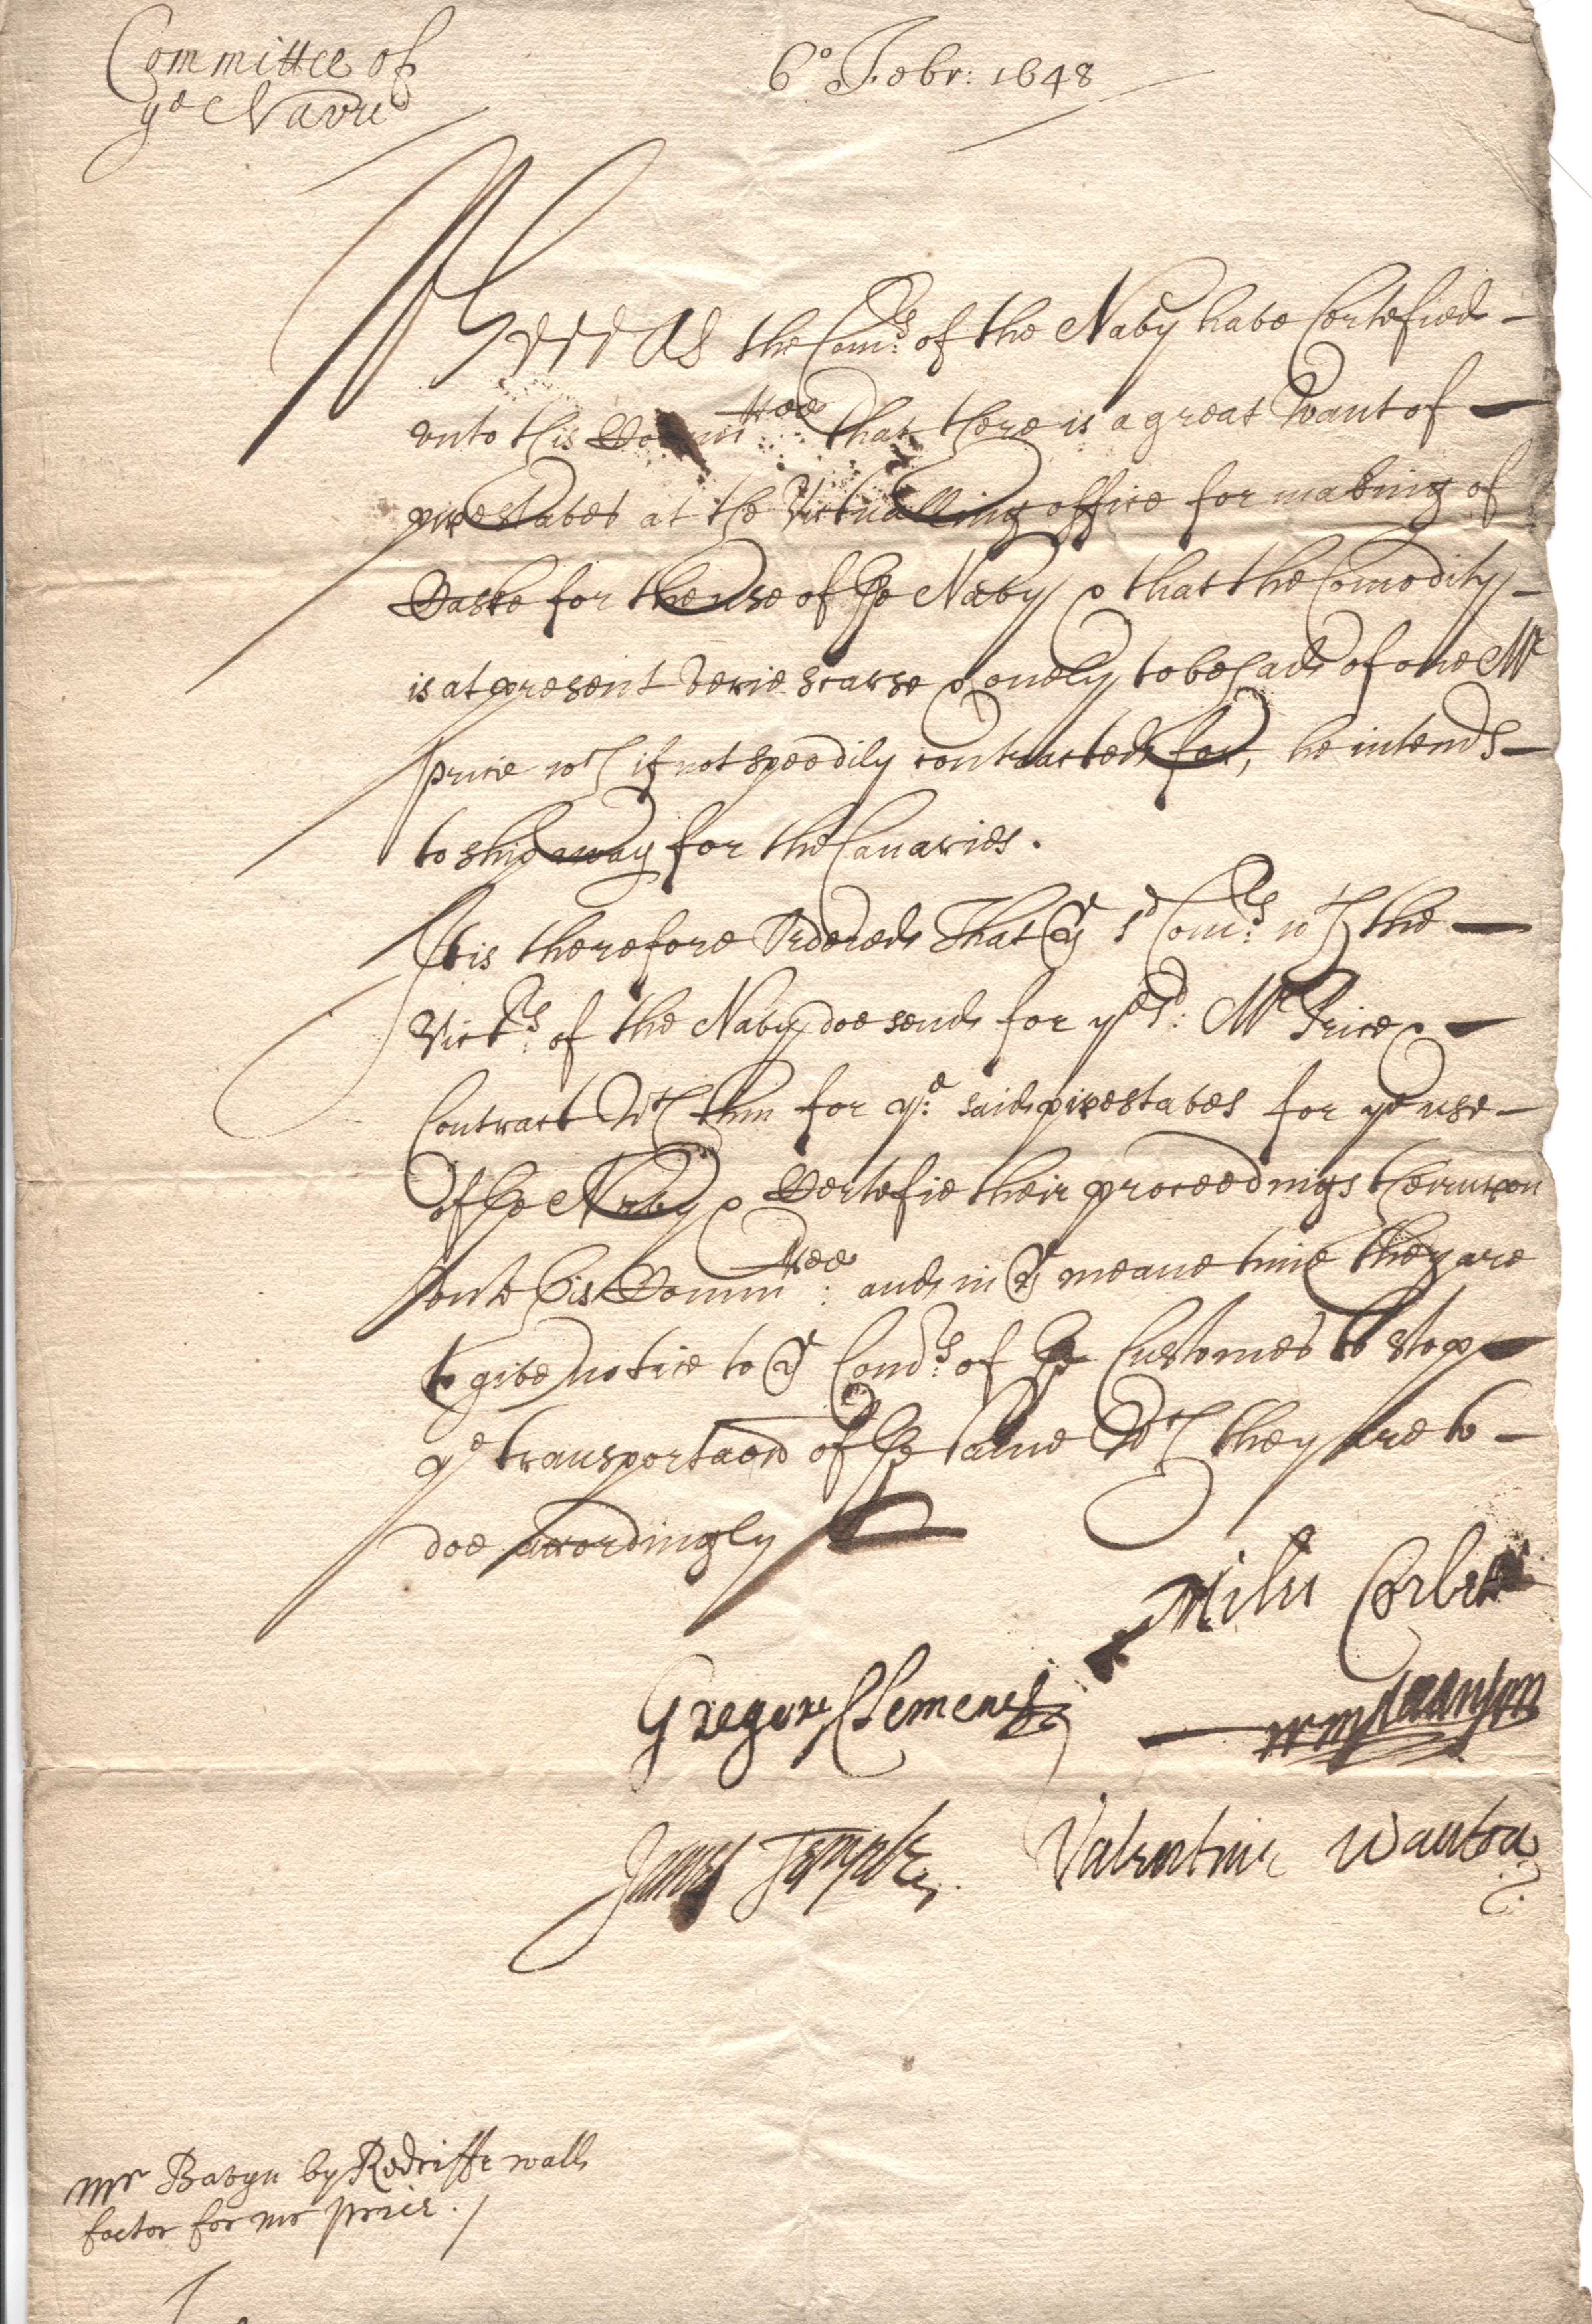 Committee of
ye Navie
6o Febr: 1648
Whereas the Com:rs of the Navy have Certefied
vnto this Comm:ttee that there is a great want of
pipestaves at the Victualling office for making of
Caske for the use of the Navy & that the Comodity
is at present verie scarse & onely to be had of one Mr
Price wch if not speedily contracted for, he intends
to ship away for the Canaries.
It is therefore Ordered That ye sd Com:rs wth the
Vict:rs of the Navy doe send for ye sd: Mr Price &
Contract wth him for ye: said pipestaves for ye use
of the Navy & Certefie their proceedings thereupon
vnto this Comm:ttee and in ye meane time they are
to give notice to ye Com:rs of the Customes to stop
ye transportacon of the same wch they are to
doe accordingly
Miles Corbett
Gregory Clement
James Temple
Valentine Wauton
mr Bavyn by Redriffe wall
factor for mr price./